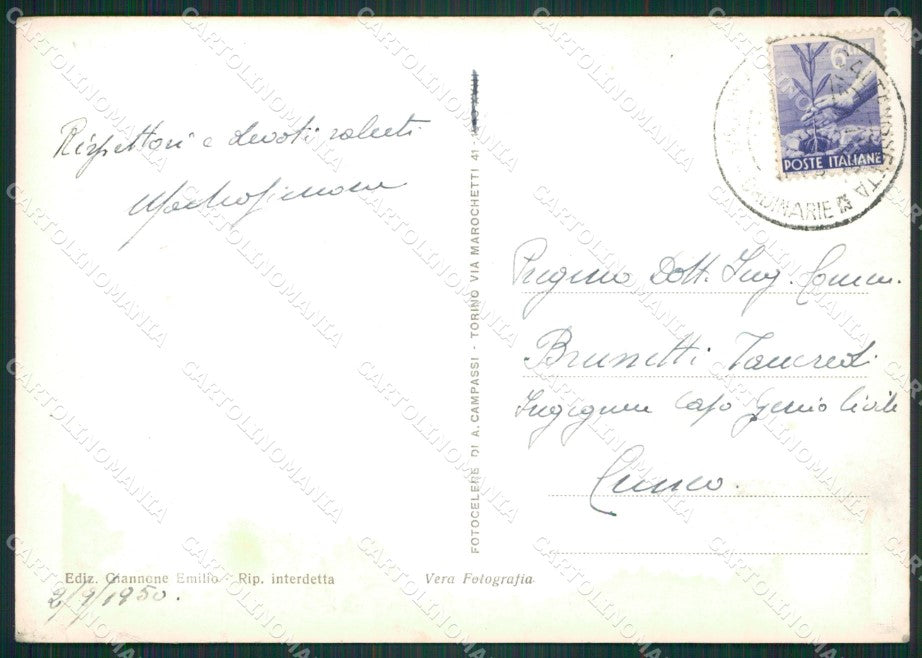 Rispettosi e devoti saluti
6
POSTE ITALIANE
CALTANISSETTA
ORDINARIE
Dott. Ing. Comm.
Brunetti Tancredi
Ingegnere Capo Genio Civile
Cuneo.
FOTOCELERE DI A. CAMPASSI - TORINO VIA MAROCHETTI 41
Ediz. Giannone Emilio - Rip. interdetta
Vera Fotografia
2/9/1950.
CARTOLINOMANIA